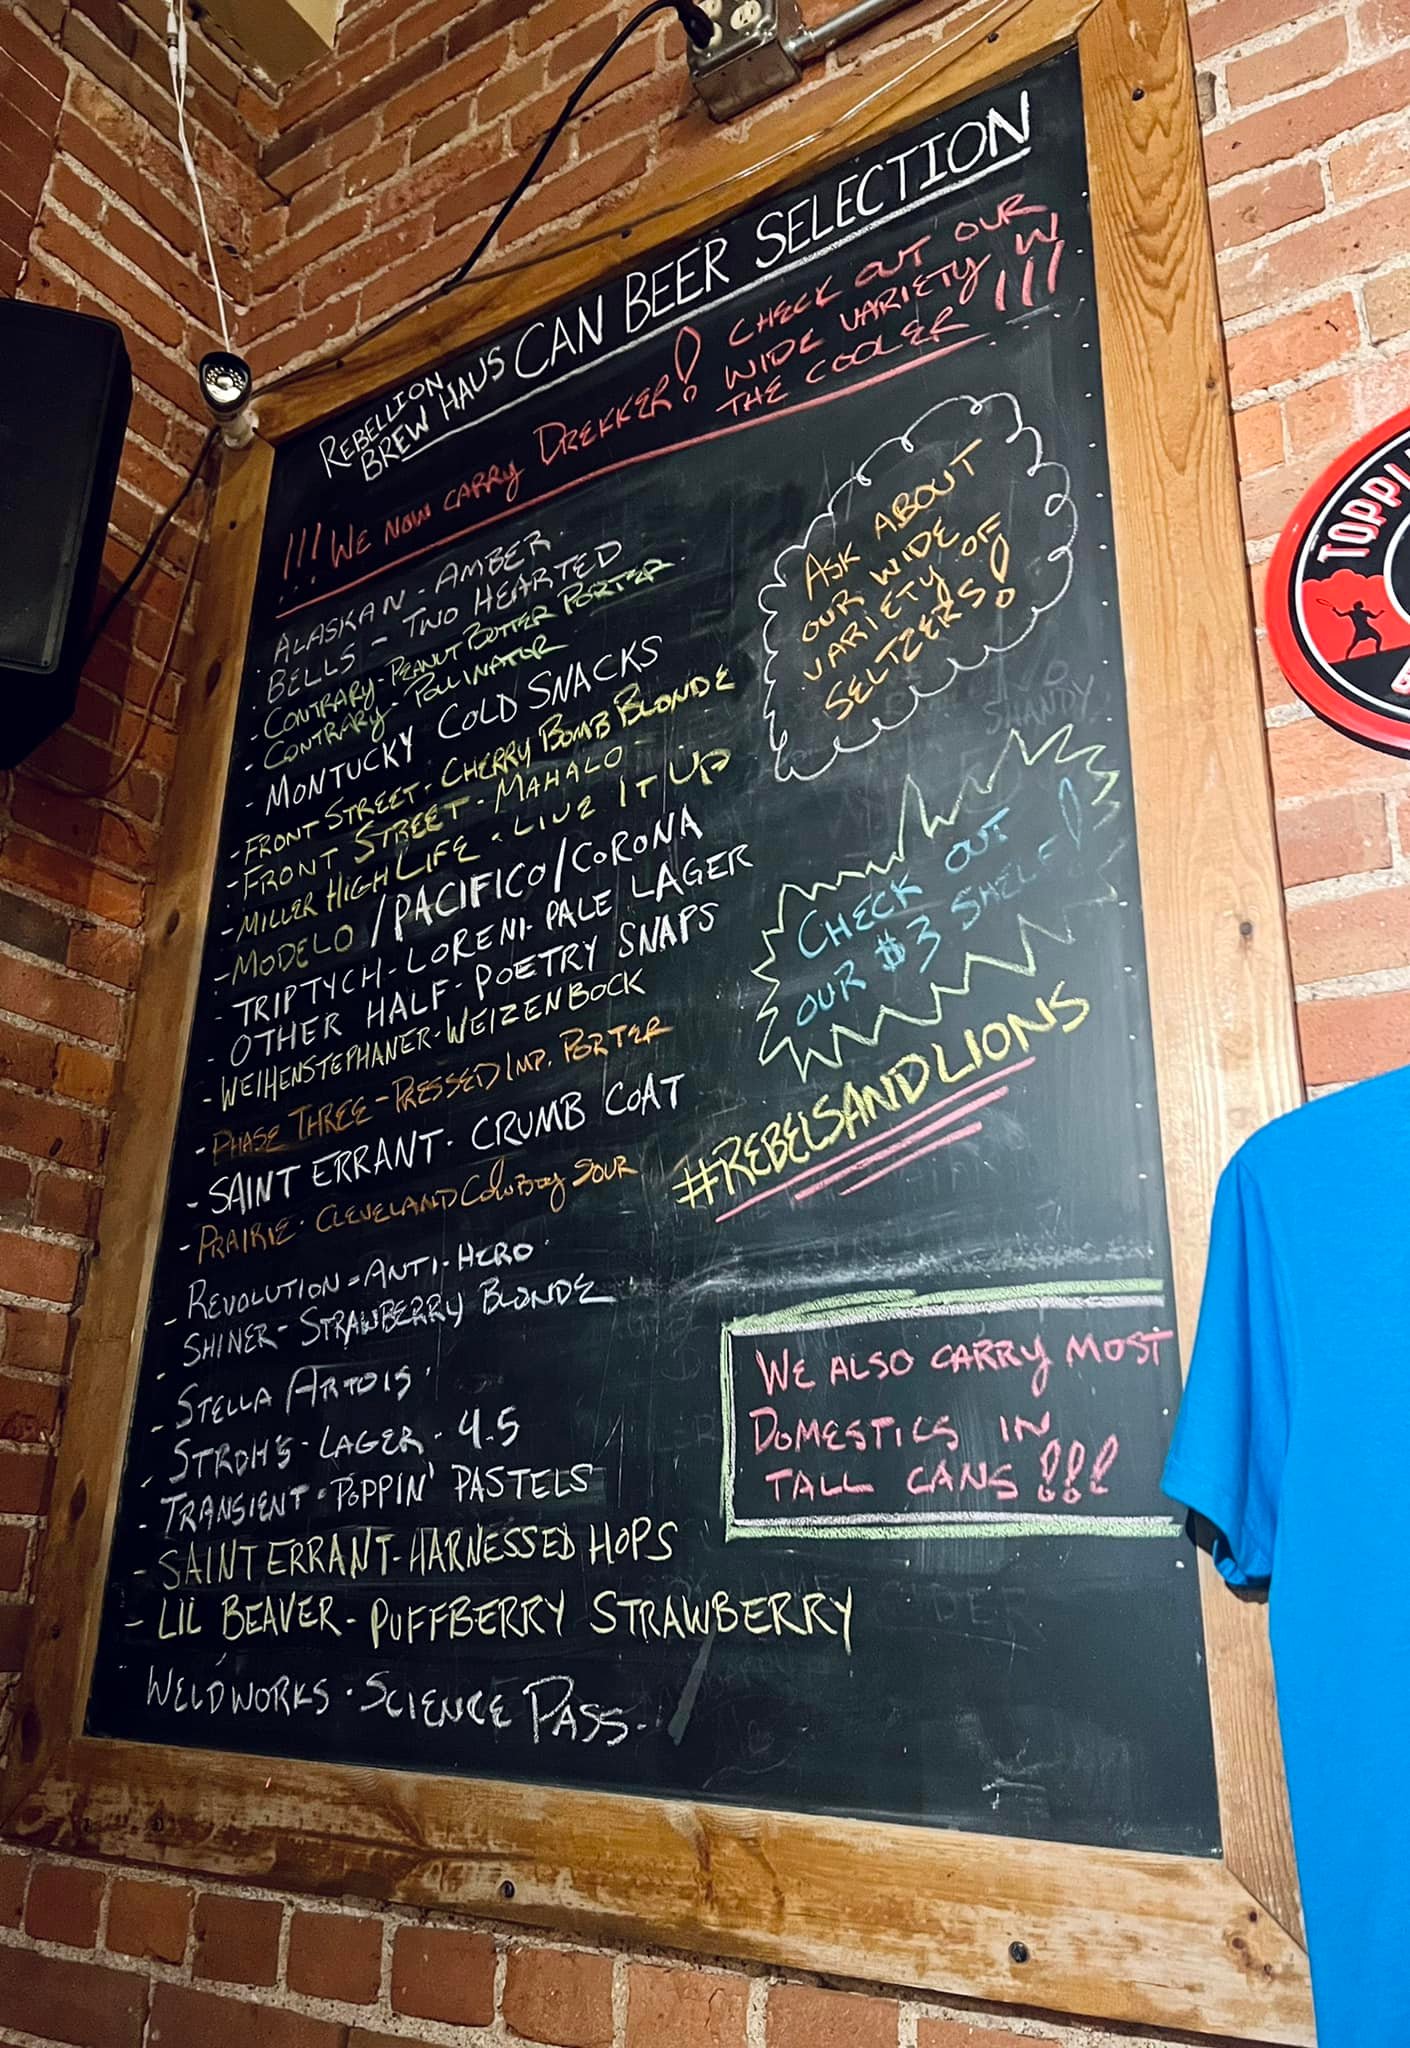 REBELLION
BREW HAUS CAN BEER SELECTION
!!! WE NOW CARRY DREKKER! CHECK OUT OUR
WIDE VARIETY IN
THE COOLER !!!
- ALASKAN - AMBER.
- BELLS - TWO HEARTED
- CONTRARY - PEANUT BUTTER PORTER
- CONTRARY - POLLINATOR
- MONTUCKY COLD SNACKS
- FRONT STREET - CHERRY BOMB BLONDE
- FRONT STREET - MAHALO -
- MILLER HIGH LIFE - LIVE IT UP
- MODELO / PACIFICO / CORONA
- TRIPTYCH - LORENI - PALE LAGER
- OTHER HALF - POETRY SNAPS
- WEIHENSTEPHANER - WEIZENBOCK
- PHASE THREE - PRESSED IMP. PORTER
- SAINT ERRANT - CRUMB COAT
- PRAIRIE - CLEVELAND COWBOY SOUR
- REVOLUTION - ANTI-HERO
- SHINER - STRAWBERRY BLONDE
- STELLA ARTOIS
- STROH'S - LAGER - 4.5
- TRANSIENT - POPPIN' PASTELS
- SAINT ERRANT - HARNESSED HOPS
- LIL BEAVER - PUFFBERRY STRAWBERRY
WELDWORKS - SCIENCE PASS -
ASK ABOUT
OUR WIDE
VARIETY OF
SELTZERS!
SHANDY
CHECK OUT
OUR $3 SHELF!
#REBELSANDLIONS
WE ALSO CARRY MOST
DOMESTICS IN
TALL CANS!!!
TOPPL